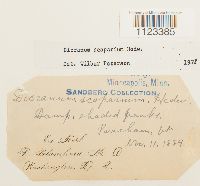 1123385
Dicranum scoparium Hedw.
Det. Wilbur Peterson 1978
Minneapolis, Minn.
SANDBERG COLLECTION.
Dicranum scoparium, Hedw.
Damp, shaded banks.
Nov. 11, 1884
Washington, D. C.